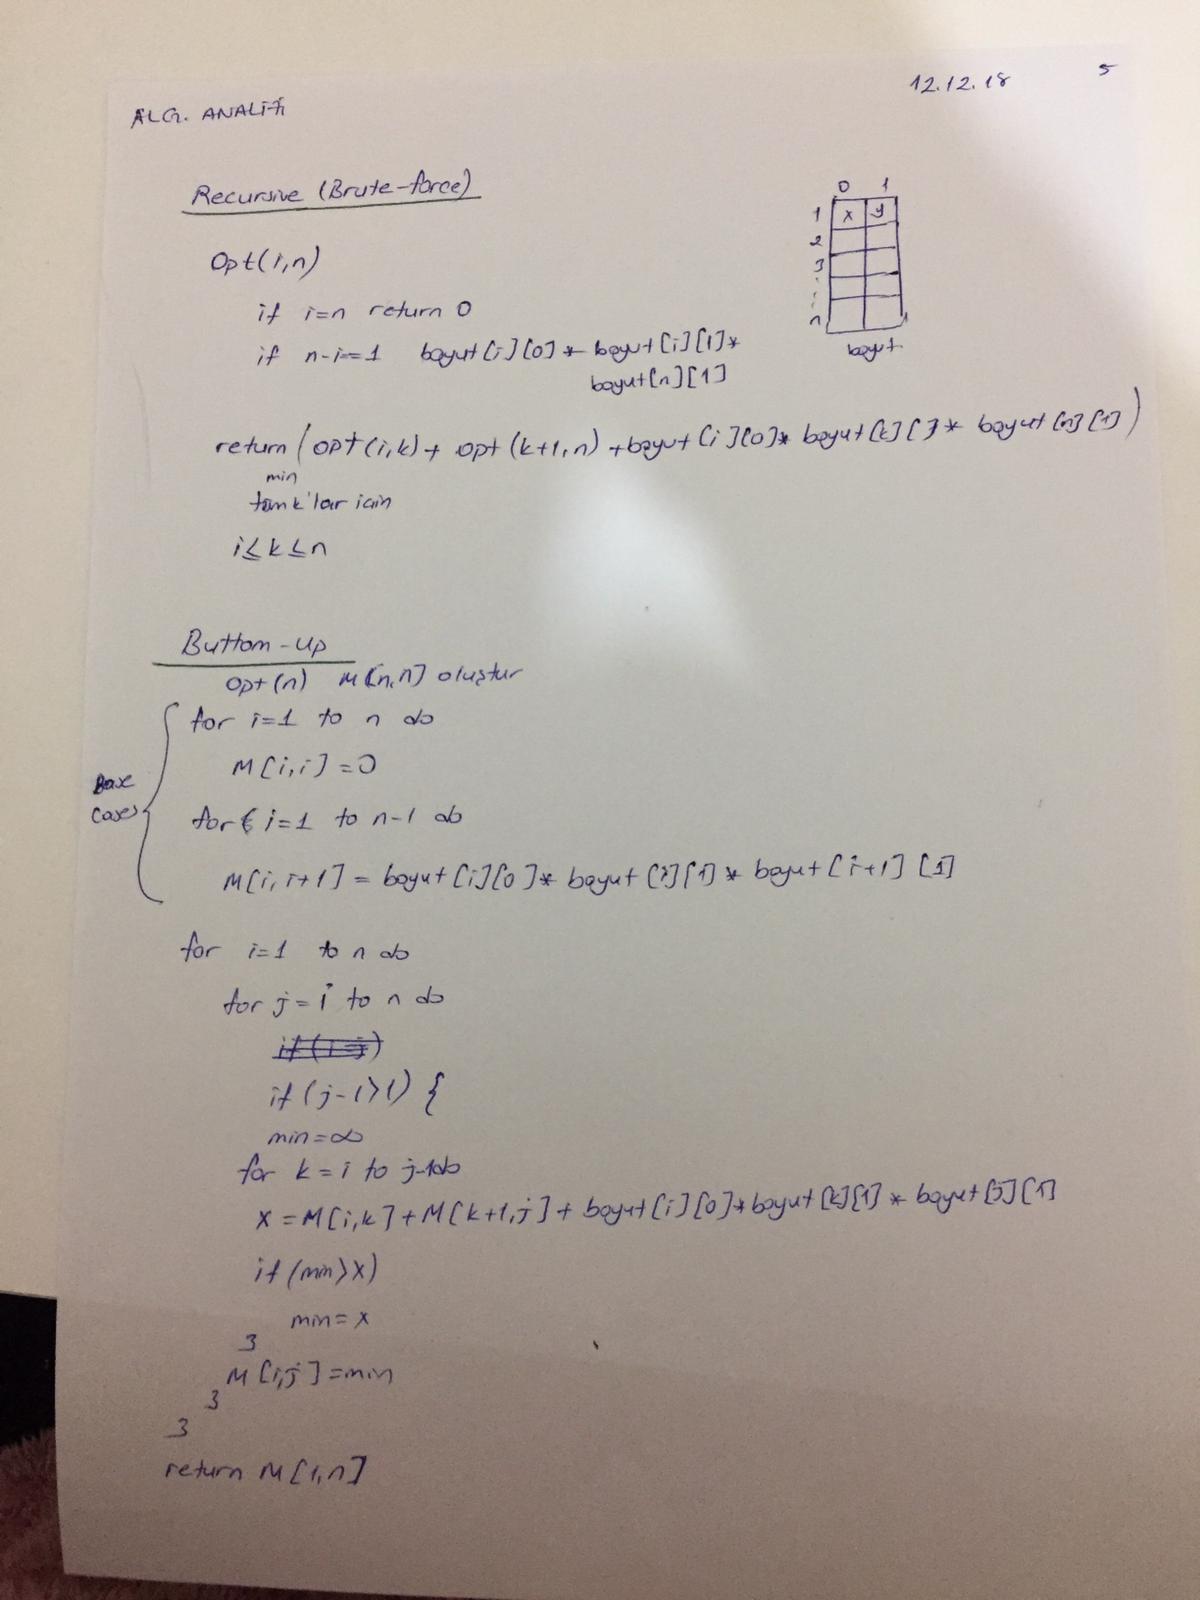 12.12.18 5
ALG. ANALİZİ
Recursive (Brute-force)
0 1
1 x y
2
3
n
boyut
Opt(i,n)
if i=n return 0
if n-i=1 boyut[i][0]* boyut[i][1]*
boyut[n][1]
return (opt(i,k)+ opt(k+1,n) +boyut[i][0]* boyut[k][1]* boyut[n][1])
min
tüm k'lar için
i≤k≤n
Buttom-Up
Opt(n) M[n,n] oluştur
Base
Cases
for i=1 to n do
M[i,i]=0
for i=1 to n-1 do
M[i,i+1] = boyut[i][0]* boyut[i][1]* boyut[i+1][1]
for i=1 to n do
for j=i to n do
if(i=j)
if(j-i>1) {
min=∞
for k=i to j-1 do
x=M[i,k]+M[k+1,j]+ boyut[i][0]*boyut[k][1]* boyut[j][1]
if(min>x)
min=x
}
M[i,j]=min
}
}
return M[1,n]